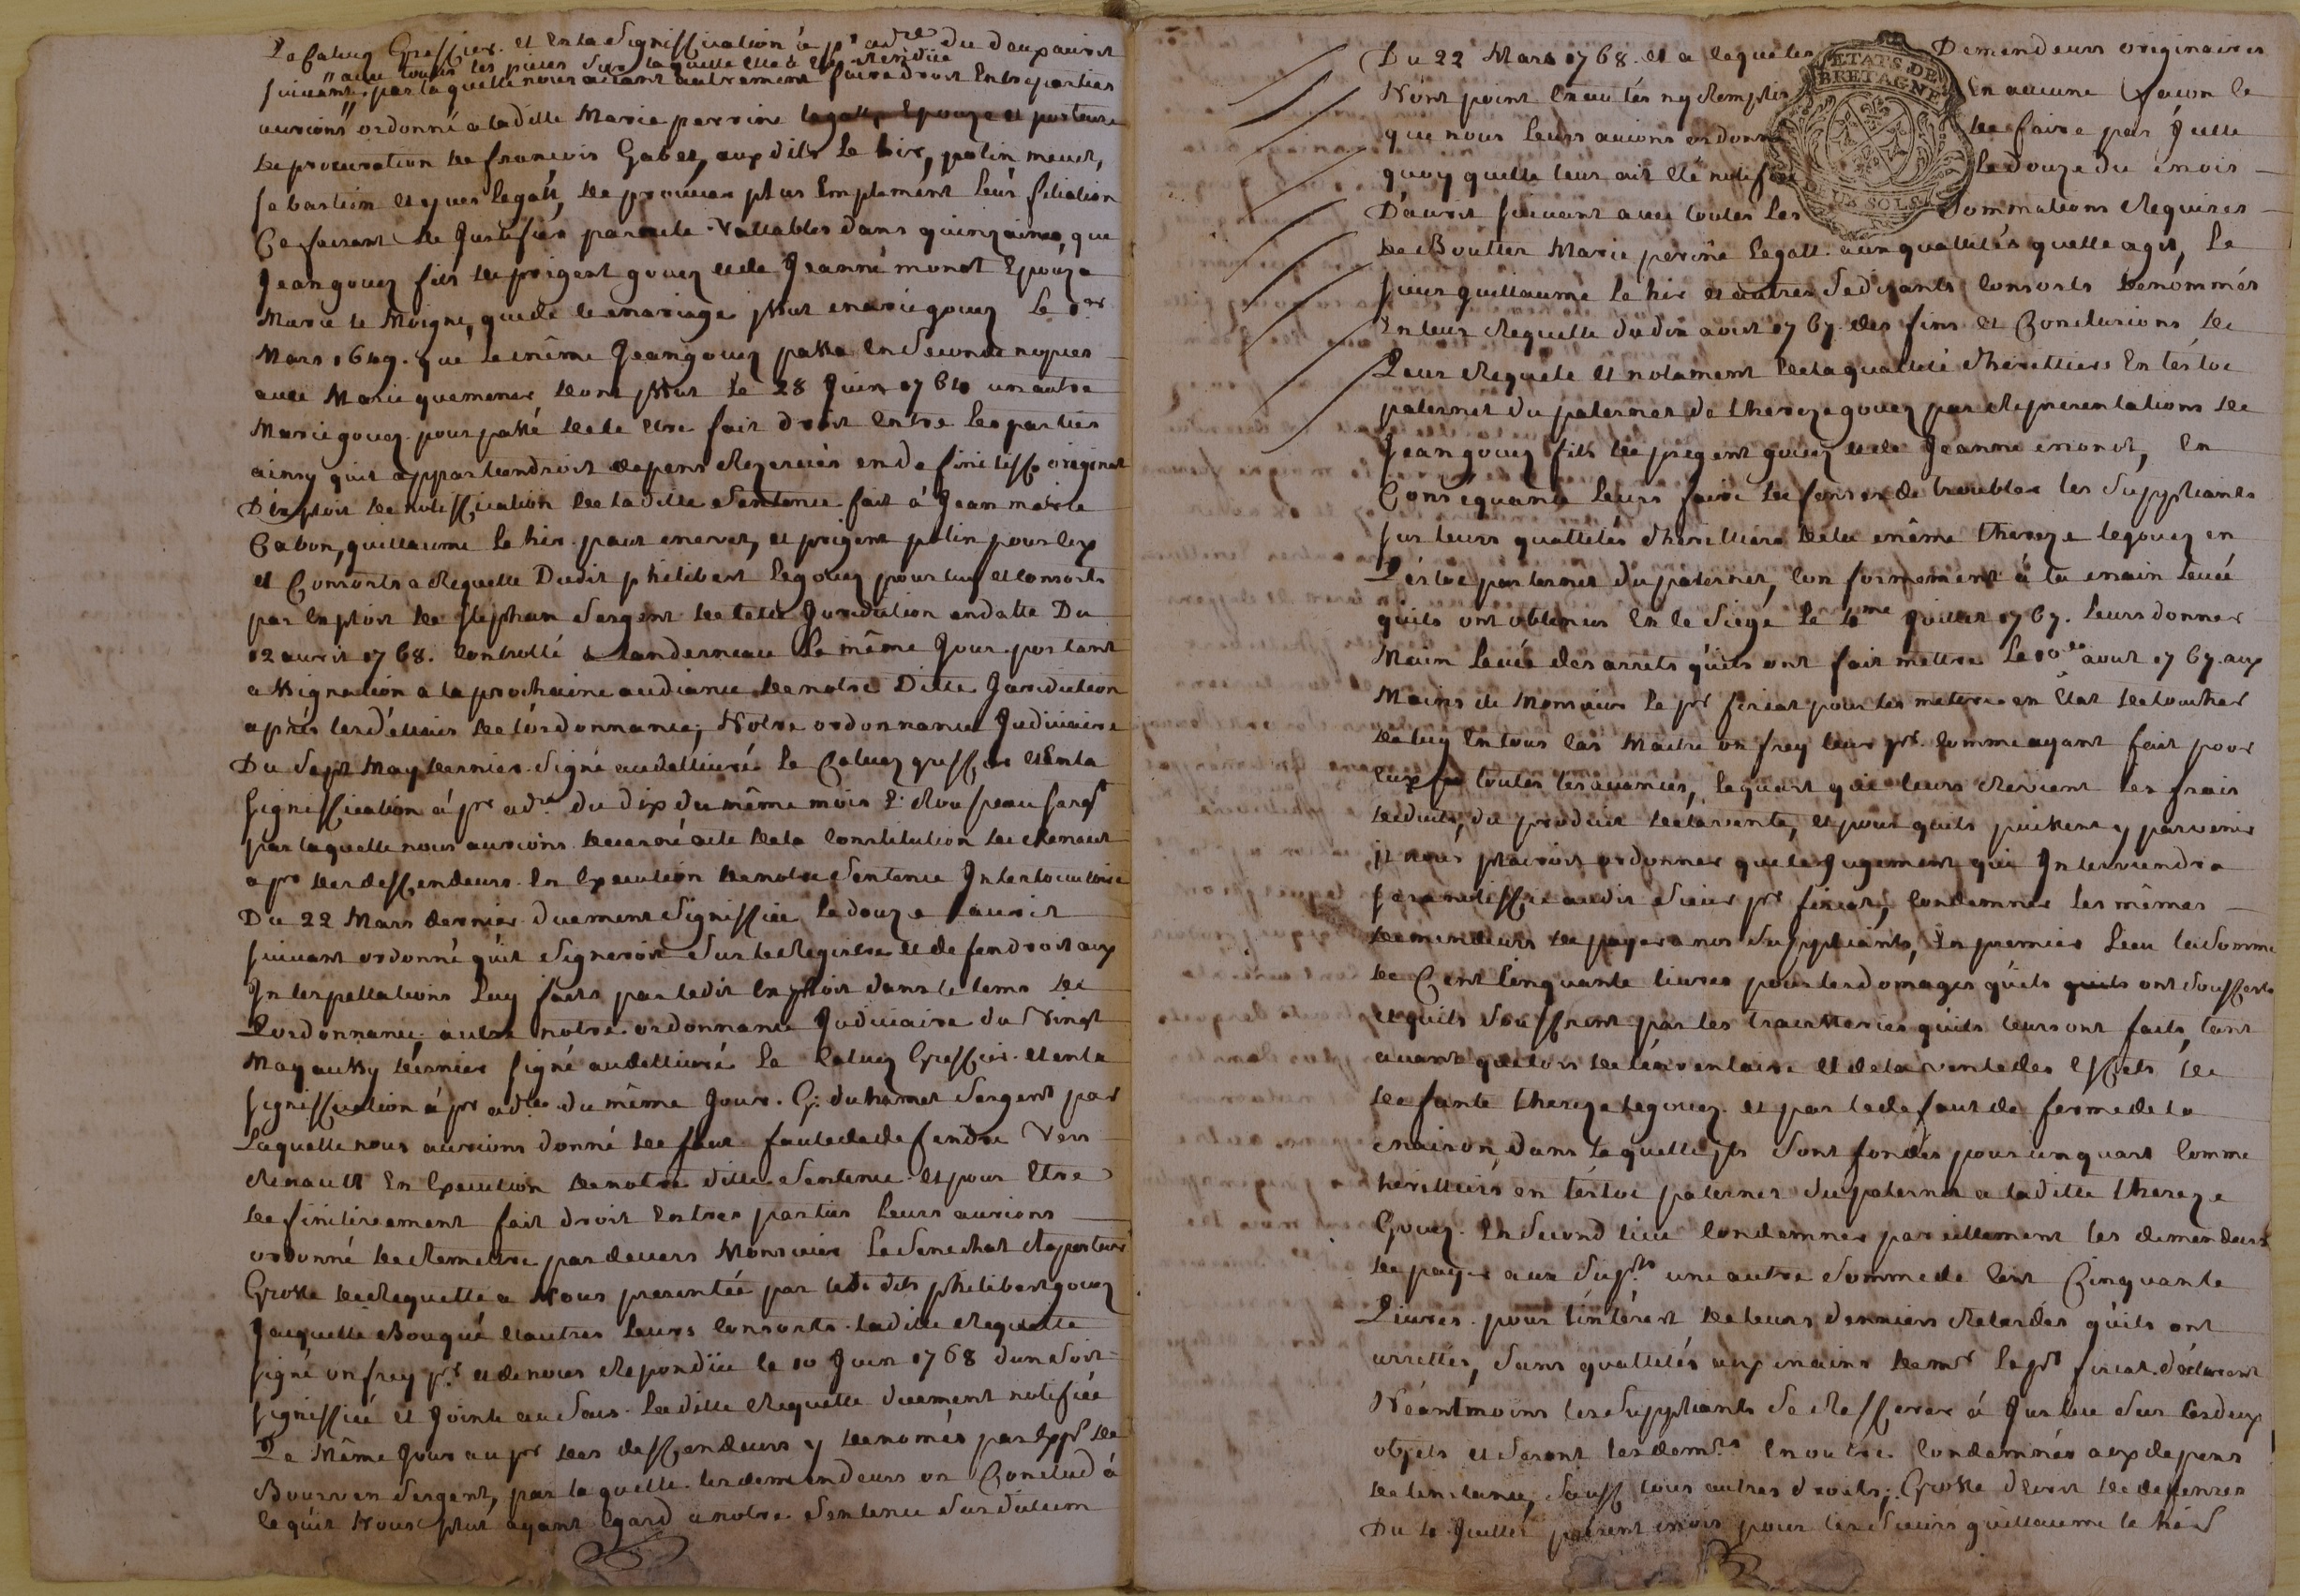 Le Caluez Greffier. et en la Signiffication à pr adre du doux avril
avec toutes les pieces sur laquelle elle a été rendüe
suivant par laquelle nous avant autrement faire droit Entreparties
aurions ordonné a ladille Marie perrine legall, Epouze et porteuze
de procuration de francois Gabel, aux dits le hir, polin meuel,
sebastien et yves legall, de prouver plus Emplement leur filiation
Ce faisant de Justifier par acte Vallables dans quinzaines, que
Jean gouez fils de prigent gouez et de Jeanne monot Epouza
Marie le Moigne, que de le mariage jssut marie gouez le 1er
Mars 1649. que le même Jean gouez passa En Seconde nopces
avec Marie quemener, dont jssut le 28 Juin un autre
Marie gouez. pour passé de le Etre fait droit Entre les parties
ainsy quil appartiendroit depens Rezervés en definitiff original
D'Exploit de notiffication de ladille Sentence fait à Jean marie
Cabon, guillaume le hir. et prigent polin pour Eux
et Consorts a Requette Dudit philibert legouez pour luy et Consorts
par Exploit de Stephan Sergent de cette Juridiction en datte Du
12 avril 1768. Controllé à Landerneau Le même Jour portant
assignation a la prochaine audiance de notre Ditte Juridiction
après les délais de l'ordonnance; Notre ordonnance Judiciaire
Du Sept May dernier. Signé au dellivré Le Caluez greffier et En la
Signiffication à pr adre du dix du même mois Rousseau Sergt
par laquelle nous aurions decerné acte de la Constitution de Renault
a pr des deffendeurs. En Execution de notre Sentence Interlocutoire
Du 22 Mars dernier duement Signiffiée le douze avril
suivant ordonné qu'il Signeroit Sur le Registre et defendroit aux
Interpellations luy faits par ledit Exploit dans le tems de
L'ordonnance. autre notre ordonnance Judiciaire du Vingt
May aussy dernier Signé au dellivré Le Caluez Greffier. et en la
signiffication à pr adre du même Jour. G: duhamel Sergent par
Laquelle nous aurions donné deffaut faute de deffendre Vers
Renault En Execution de notre ditte Sentence et pour Etre
definitivement fait droit Entre parties leurs aurions
ordonné de Remettre par devers Monsieur Le Senechal Raporteur
Grosse de Requette a Nous presentée par lesdits philibert gouez
Jacquette Bougué et autres leurs Consorts. ladille Requette
signé onfray pr. et de nous Repondüe le 10 Juin 1768 dun Soit
signiffiée et Jointe au Sacs. ladille Requette duement notifiée
Le Même Jour au pr des deffendeurs y denomés par de
Bourven Sergent, par laquelle les demendeurs on Conclud à
le qu'il Nous plut ayant Egard a notre Sentence Sur dictum
Du 22 Mars 1768. et a lequelles Demendeurs originaires
N'ont point Executés ny Remplis En aucune facon le
que nous leurs avions ordonné de faire par Jcelle
quoy quelle leur ait Eté notifiée le douze du mois
D'avril suivant avec toutes les Sommations Requises
de Boutter Marie perine legall. aux quallités quelle agit, le
sieur guillaume le hir et autres Sedisants Consorts denommés
En leur Requette du dix aout 1767. des fins et Conclusions de
Leur Requete et notament de la quallité d'herittiers En l'estoc
paternel du paternel de thereze gouez par Representations de
Jean gouez fils de prigent gouez et de Jeanne monot, En
Consequance leurs faire defenses de troubler les Suppliants
sur leurs quallités d'herittiers de la même thereze legouez en
L'estoc paternel du paternel, Conformement à la main levée
quils ont obtenus En ce Siege le 4me Juillet 1767. leurs donner
Main levée des arrets quils ont fait mettre le aout 1767. aux
Mains de Monsieur le pr fiscal pour les mettre en Etat de toucher
de luy En tous Cas Maitre onfray leur pr. Comme ayant fait pour
Eux toutes les avances, le quart qui leurs Revient les frais
deduits, du produit de la vente, et pour quils puissent y parvenir
il nous plairoit ordonner que le Jugement qui Interviendra
Sera notiffié audit Sieur pr fiscal, Condemner les mêmes
demendeurs de payer a nos Suppliants, En premier Lieu la Somme
de Cent Cinquante livres pour les domages qu'ils quils ont Soufferts
et quils Souffrent par les tracasseries qu'ils leurs ont faits, tant
avant que lors de l'inventaire et de la vente des Effets de
defunte thereze legouez. et par le defaut de ferme de la
maison, dans laquelle, ils Sont fondés pour un quart Comme
héritiers en l'estoc paternel du paternel a laditte thereze
Gouez. En Second lieu Condemner pareillement les demendeurs
de payer aux Supts une autre Somme de Cent Cinquante
Livres. pour l'intérest de leurs denniers Retardés qu'ils ont
arrettés, Sans quallités aux mains de mr le pr fiscal. déclarent
Néantmoins les Suppliants Se Refferer à Justice Sur les deux
objets et Seront les demrs En outre Condemnés aux depens
de l'instance, Sauff tous autres droits; Grosse d'Ecrit de defenses
Du 4 Juillet présent mois pour les Sieurs guillaume le hir
ETATS DE BRETAGNE
UN SOLS